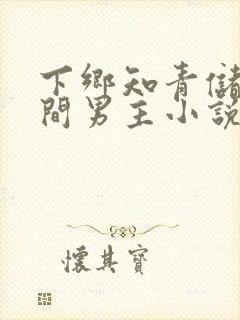 下鄉知青儲
間男主小說
懷其寶